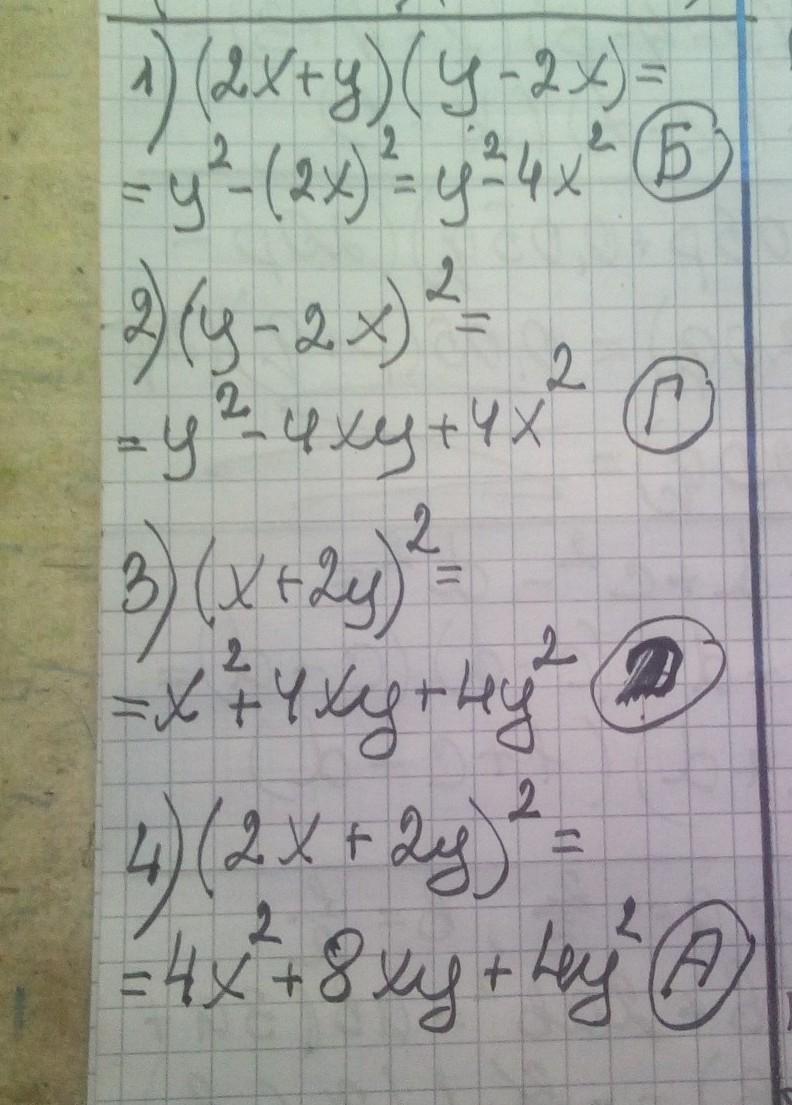 1) (2x+y)(y-2x)=
=y²-(2x)²=y²-4x² Б
2) (y-2x)²=
=y²-4xy+4x² Г
3) (x+2y)²=
=x²+4xy+4y²
4) (2x+2y)²=
=4x²+8xy+4y² А